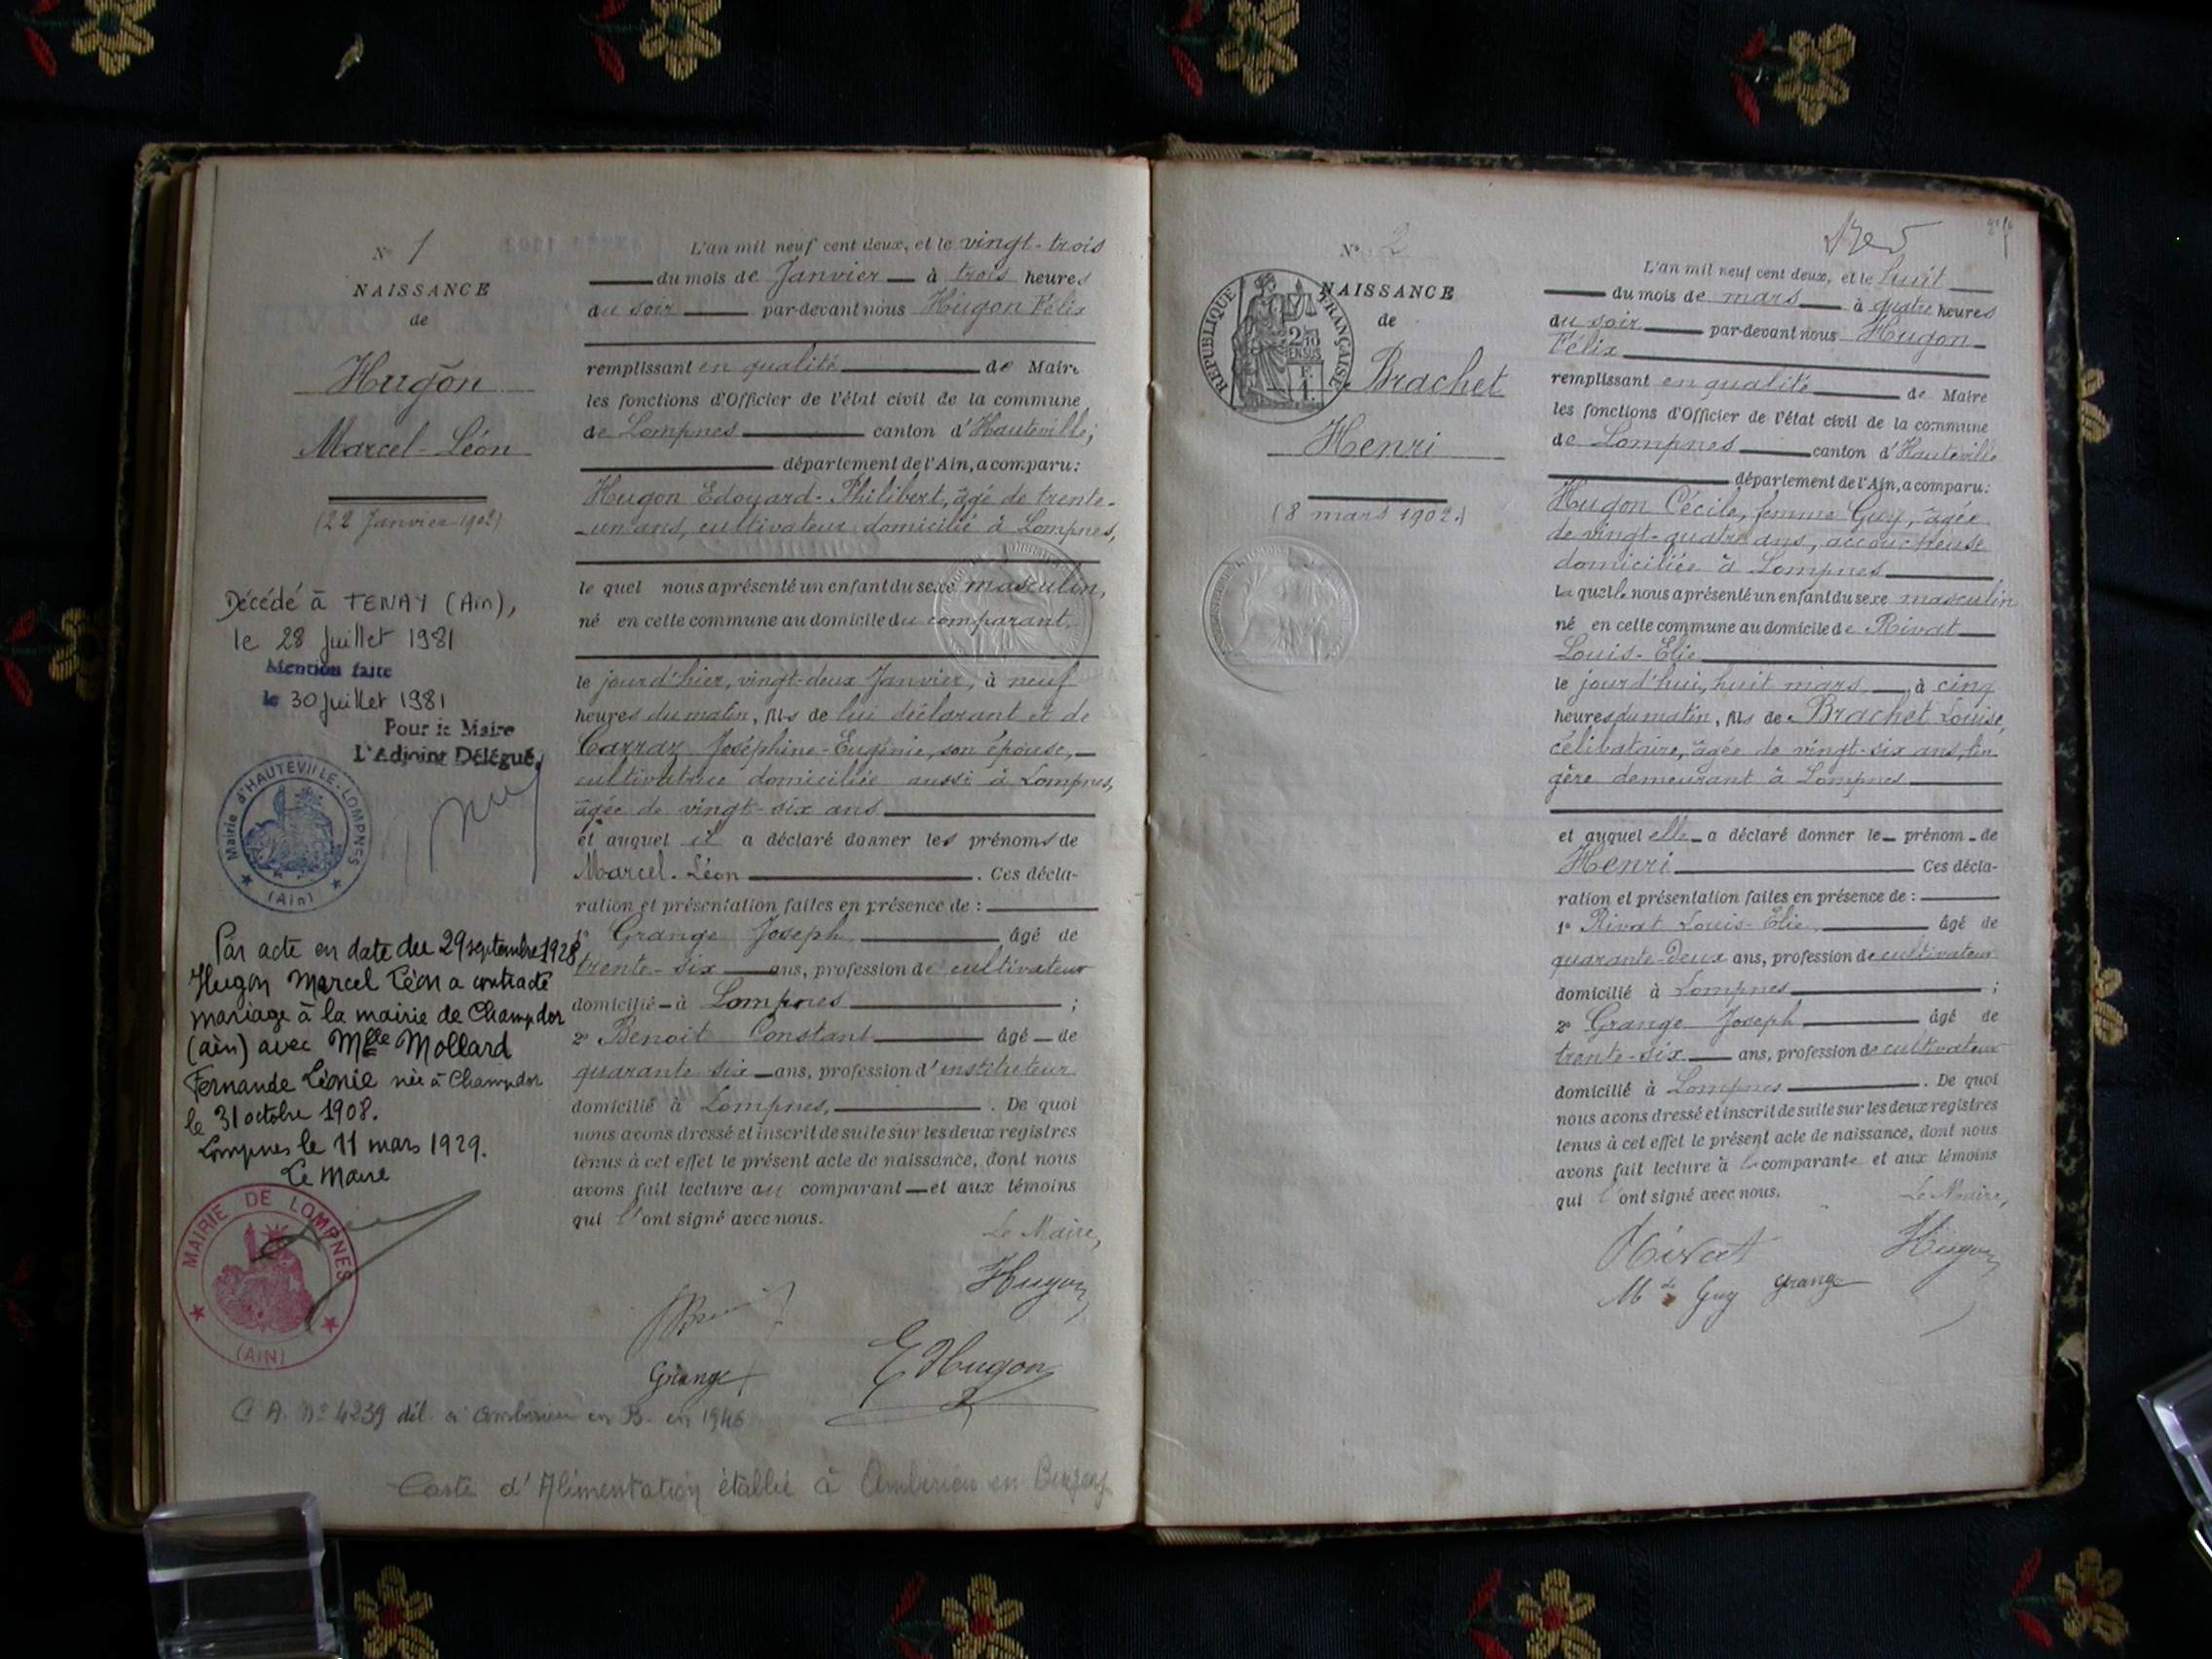 N° 1
NAISSANCE
de
Hugon
Marcel-Léon
(22 Janvier 1902)
Décédé à TENAY (Ain),
le 28 Juillet 1981
Mention faite
le 30 Juillet 1981
Pour le Maire
L'Adjoint Délégué,
Mairie d'HAUTEVILLE-LOMPNES
(Ain)
Par acte en date du 29 septembre 1928
Hugon Marcel Léon a contracté
mariage à la mairie de Champdor
(ain) avec Mlle Mollard
Fernande Léonie née à Champdor
le 31 octobre 1908.
Lompnes le 11 mars 1929.
Le Maire
MAIRIE DE LOMPNES
(AIN)
L'an mil neuf cent deux, et le vingt-trois
du mois de Janvier à trois heures
du soir par-devant nous Hugon Félix
remplissant en qualité de Maire
les fonctions d'Officier de l'état civil de la commune
de Lompnes canton d'Hauteville;
département de l'Ain, a comparu:
Hugon Edouard-Philibert, âgé de trente-
-un ans, cultivateur domicilié à Lompnes,
le quel nous a présenté un enfant du sexe masculin,
né en cette commune au domicile du comparant
le jour d'hier, vingt-deux Janvier, à neuf
heures du matin, fils de lui déclarant et de
Carraz Joséphine-Eugénie, son épouse,
cultivatrice domiciliée aussi à Lompnes,
âgée de vingt-six ans
et auquel il a déclaré donner les prénoms de
Marcel-Léon. Ces décla-
ration et présentation faites en présence de :
1° Grange Joseph, âgé de
trente-six ans, profession de cultivateur
domicilié à Lompnes ;
2° Benoit Constant âgé de
quarante six ans, profession d'instituteur
domicilié à Lompnes, . De quoi
nous avons dressé et inscrit de suite sur les deux registres
tenus à cet effet le présent acte de naissance, dont nous
avons fait lecture au comparant et aux témoins
qui l'ont signé avec nous.
Le Maire,
Hugon
Grange
E Hugon
C A. N° 4239 dél. à Ambérieu en B. en 1946
Carte d'Alimentation établie à Ambérieu en Bugey
N° 2
NAISSANCE
de
RÉPUBLIQUE FRANÇAISE
Brachet
Henri
(8 mars 1902.)
L'an mil neuf cent deux, et le huit
du mois de mars à quatre heures
du soir par-devant nous Hugon
Félix
remplissant en qualité de Maire
les fonctions d'Officier de l'état civil de la commune
de Lompnes canton d'Hauteville
département de l'Ain, a comparu:
Hugon Cécile, femme Guy, âgée
de vingt-quatre ans, accoucheuse
domiciliée à Lompnes
la quelle nous a présenté un enfant du sexe masculin
né en cette commune au domicile de Rivat
Louis-Elie
le jour d'hui, huit mars, à cinq
heures du matin, fils de Brachet Louise,
célibataire, âgée de vingt-six ans, lin
gère demeurant à Lompnes
et auquel elle a déclaré donner le prénom de
Henri Ces décla-
ration et présentation faites en présence de :
1° Rivat Louis-Elie âgé de
quarante-deux ans, profession de cultivateur
domicilié à Lompnes ;
2° Grange Joseph âgé de
trente-six ans, profession de cultivateur
domicilié à Lompnes . De quoi
nous avons dressé et inscrit de suite sur les deux registres
tenus à cet effet le présent acte de naissance, dont nous
avons fait lecture à la comparante et aux témoins
qui l'ont signé avec nous.
Le Maire,
Rivat Hugon
Mde Guy Grange